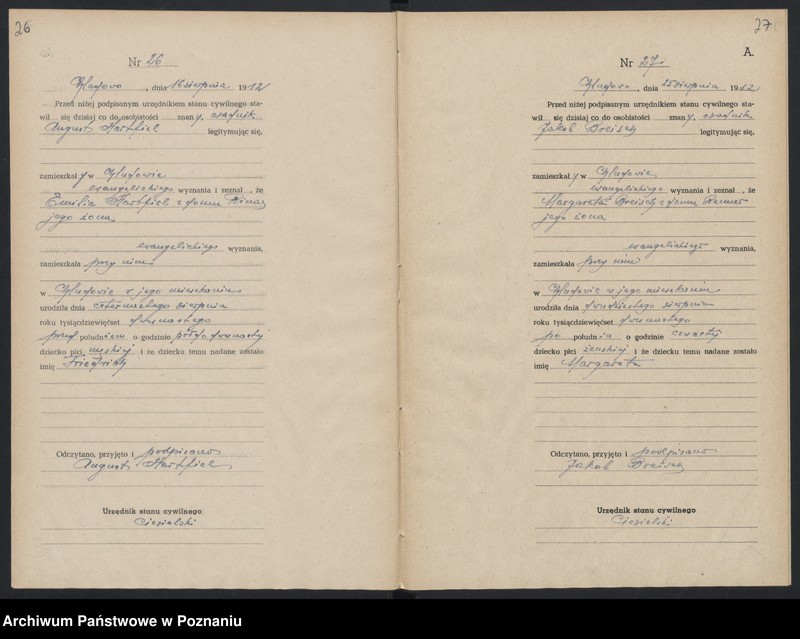 26
Nr 26
, dnia 16 sierpnia 1912
Przed niżej podpisanym urzędnikiem stanu cywilnego sta-
wił się dzisiaj co do osobistości znany, osadnik
August Hartfiel legitymując się,
zamieszkał y w
ewangelickiego wyznania i zeznał , że
Emilia Hartfiel z domu
jego żona
ewangelickiego wyznania,
zamieszkała przy nim
w w jego mieszkaniu
urodziła dnia czternastego sierpnia
roku tysiącdziewięćset dwunastego
przed południem o godzinie pół do dwunastej
dziecko płci męskiej i że dziecku temu nadane zostało
imię Friedrich
Odczytano, przyjęto i podpisano
August Hartfiel
Urzędnik stanu cywilnego
Ciesielski
27
A.
Nr 27
, dnia 25 sierpnia 1912
Przed niżej podpisanym urzędnikiem stanu cywilnego sta-
wił się dzisiaj co do osobistości znany, osadnik
Jakob legitymując się,
zamieszkał y w
ewangelickiego wyznania i zeznał , że
Margareta z domu
jego żona
ewangelickiego wyznania,
zamieszkała przy nim
w w jego mieszkaniu
urodziła dnia dwudziestego sierpnia
roku tysiącdziewięćset dwunastego
po południu o godzinie czwartej
dziecko płci żeńskiej i że dziecku temu nadane zostało
imię Margareta
Odczytano, przyjęto i podpisano
Jakob
Urzędnik stanu cywilnego
Ciesielski
Archiwum Państwowe w Poznaniu